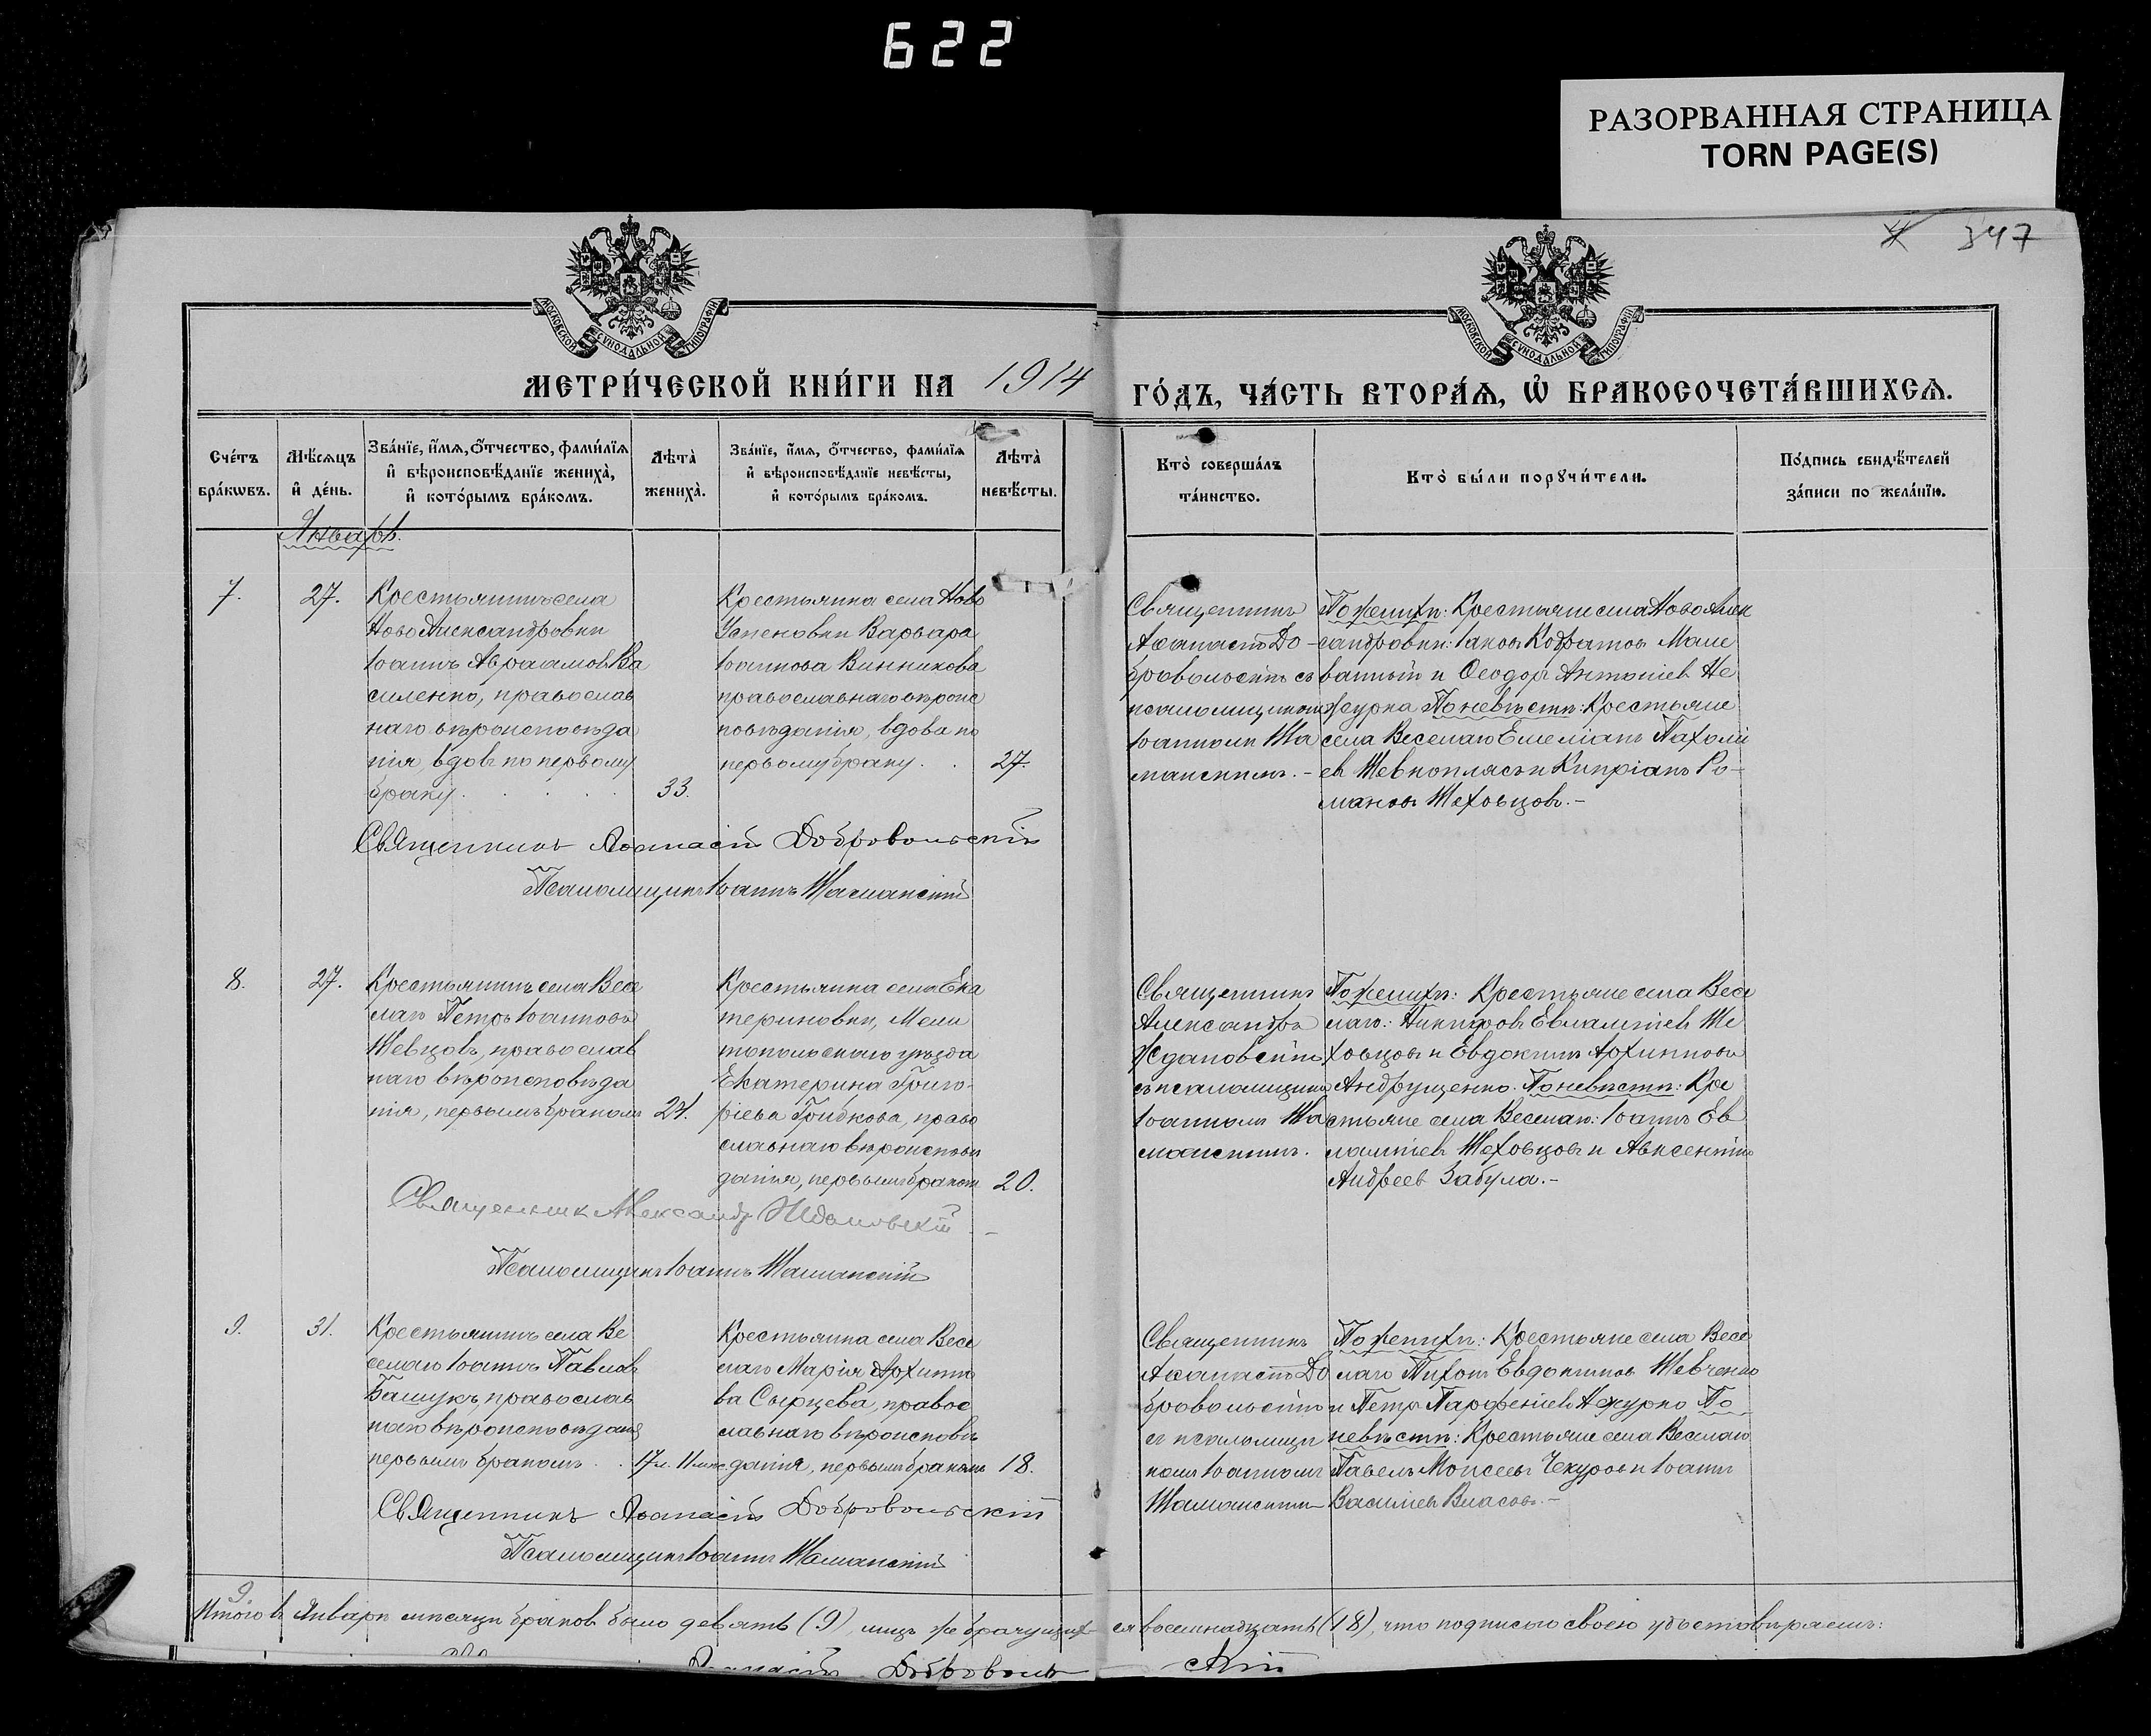 622
РАЗОРВАННАЯ СТРАНИЦА
TORN PAGE(S)
347
МОСКОВСКОЙ СУНОДАЛЬНОЙ ТИПОГРАФІИ
МОСКОВСКОЙ СУНОДАЛЬНОЙ ТИПОГРАФІИ
МЕТРИ́ЧЕСКОЙ КНИ́ГИ НА 1914 ГО́ДЪ, ЧА́СТЬ ВТОРА́Ѧ, Ѽ БРАКОСОЧЕТА́ВШИХСѦ.
Сче́тъ бра́кѡвъ.
Мѣ́сѧцъ и҆ де́нь.
Зва́нїе, и҆́мѧ, ѻ҆́тчество, фами́лїѧ и҆ вѣроисповѣ́данїе жениха̀, и҆ кото́рымъ бра́комъ.
Лѣ́та̀ жениха̀.
Зва́нїе, и҆́мѧ, ѻ҆́тчество, фами́лїѧ и҆ вѣроисповѣ́данїе невѣ́сты, и҆ кото́рымъ бра́комъ.
Лѣ́та̀ невѣ́сты.
Кто̀ соверша́лъ та́инство.
Кто̀ бы́ли порꙋчи́тели.
По́дпись свидѣ́телей за́писи по жела́нїю.
Январь.
7.
27.
Крестьянинъ села
Ново Александровки
Іоаннъ Авраамовъ Ва
силенко, православ
наго вѣроисповѣда
нія, вдовъ по первому
браку
33.
Крестьянка села Ново
Успеновки Варвара
Іоаннова Винникова
православнаго вѣроис
повѣданія, вдова по
первому браку
27.
Священникъ
Аѳанасій До-
бровольскій съ
псаломщикомъ
Іоанномъ Ша
манскимъ.-
По женихѣ: Крестьяне села Ново Алек
сандровки: Іаковъ Кодратовъ Мали
ванный и Ѳеодоръ Антоніевъ Не
журка По невѣстѣ: Крестьяне
села Веселаго Емеліанъ Пахомі
евъ Шевкоплясъ и Кипріанъ Ро-
мановъ Шеховцовъ.-
Священникъ Аѳанасій Добровольскій
Псаломщикъ Іоаннъ Шаманскій
8.
27.
Крестьянинъ села Весе
лаго Петръ Іоанновъ
Шевцовъ, православ
наго вѣроисповѣда
нія, первымъ бракомъ
24.
Крестьянка села Ека
териновки, Мели
топольскаго уѣзда
Екатерина Григо-
ріева Грибкова, право
славнаго вѣроисповѣ
данія, первымъ бракомъ
20.
Священникъ
Александръ
Ждановскій
съ псаломщикомъ
Іоанномъ Ша
манскимъ.
По женихѣ: Крестьяне села Весе
лаго: Никифоръ Евлампіевъ Ше
ховцовъ и Евдокимъ Архиповъ
Андрущенко. По невѣстѣ: Кре
стьяне села Веселаго: Іоаннъ Ев
лампіевъ Шеховцовъ и Авксентій
Андреевъ Забула.-
Священник Александр Ждановскій
Псаломщикъ Іоаннъ Шаманскій
9.
31.
Крестьянинъ села Ве
селаго Іоаннъ Павловъ
Башукъ, православ
наго вѣроисповѣданія
первымъ бракомъ
17 л. 11 мѣс.
Крестьянка села Весе
лаго Марія Архипо
ва Сырцева, правос
лавнаго вѣроисповѣ
данія, первымъ бракомъ
18.
Священникъ
Аѳанасій До
бровольскій
съ псаломщи
комъ Іоанномъ
Шаманскимъ
По женихѣ: Крестьяне села Весе
лаго Тихонъ Евдокимовъ Шевченко
и Петръ Парфеніевъ Нежурко По
невѣстѣ: Крестьяне села Веселаго
Павелъ Моисеевъ Чекуровъ и Іоаннъ
Василіевъ Власовъ.-
Священникъ Аѳанасій Добровольскій
Псаломщикъ Іоаннъ Шаманскій
9
Итого въ Январѣ мѣсяцѣ браковъ было девять (9), лицъ же брачущихся восемнадцать (18), что подписью своею удостовѣряемъ:
Аѳанасій Добровольскій